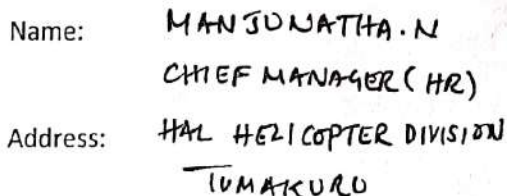 Name: MANJUNATHA.N
CHIEF MANAGER (HR)
Address: HAL HELICOPTER DIVISION
TUMAKURU